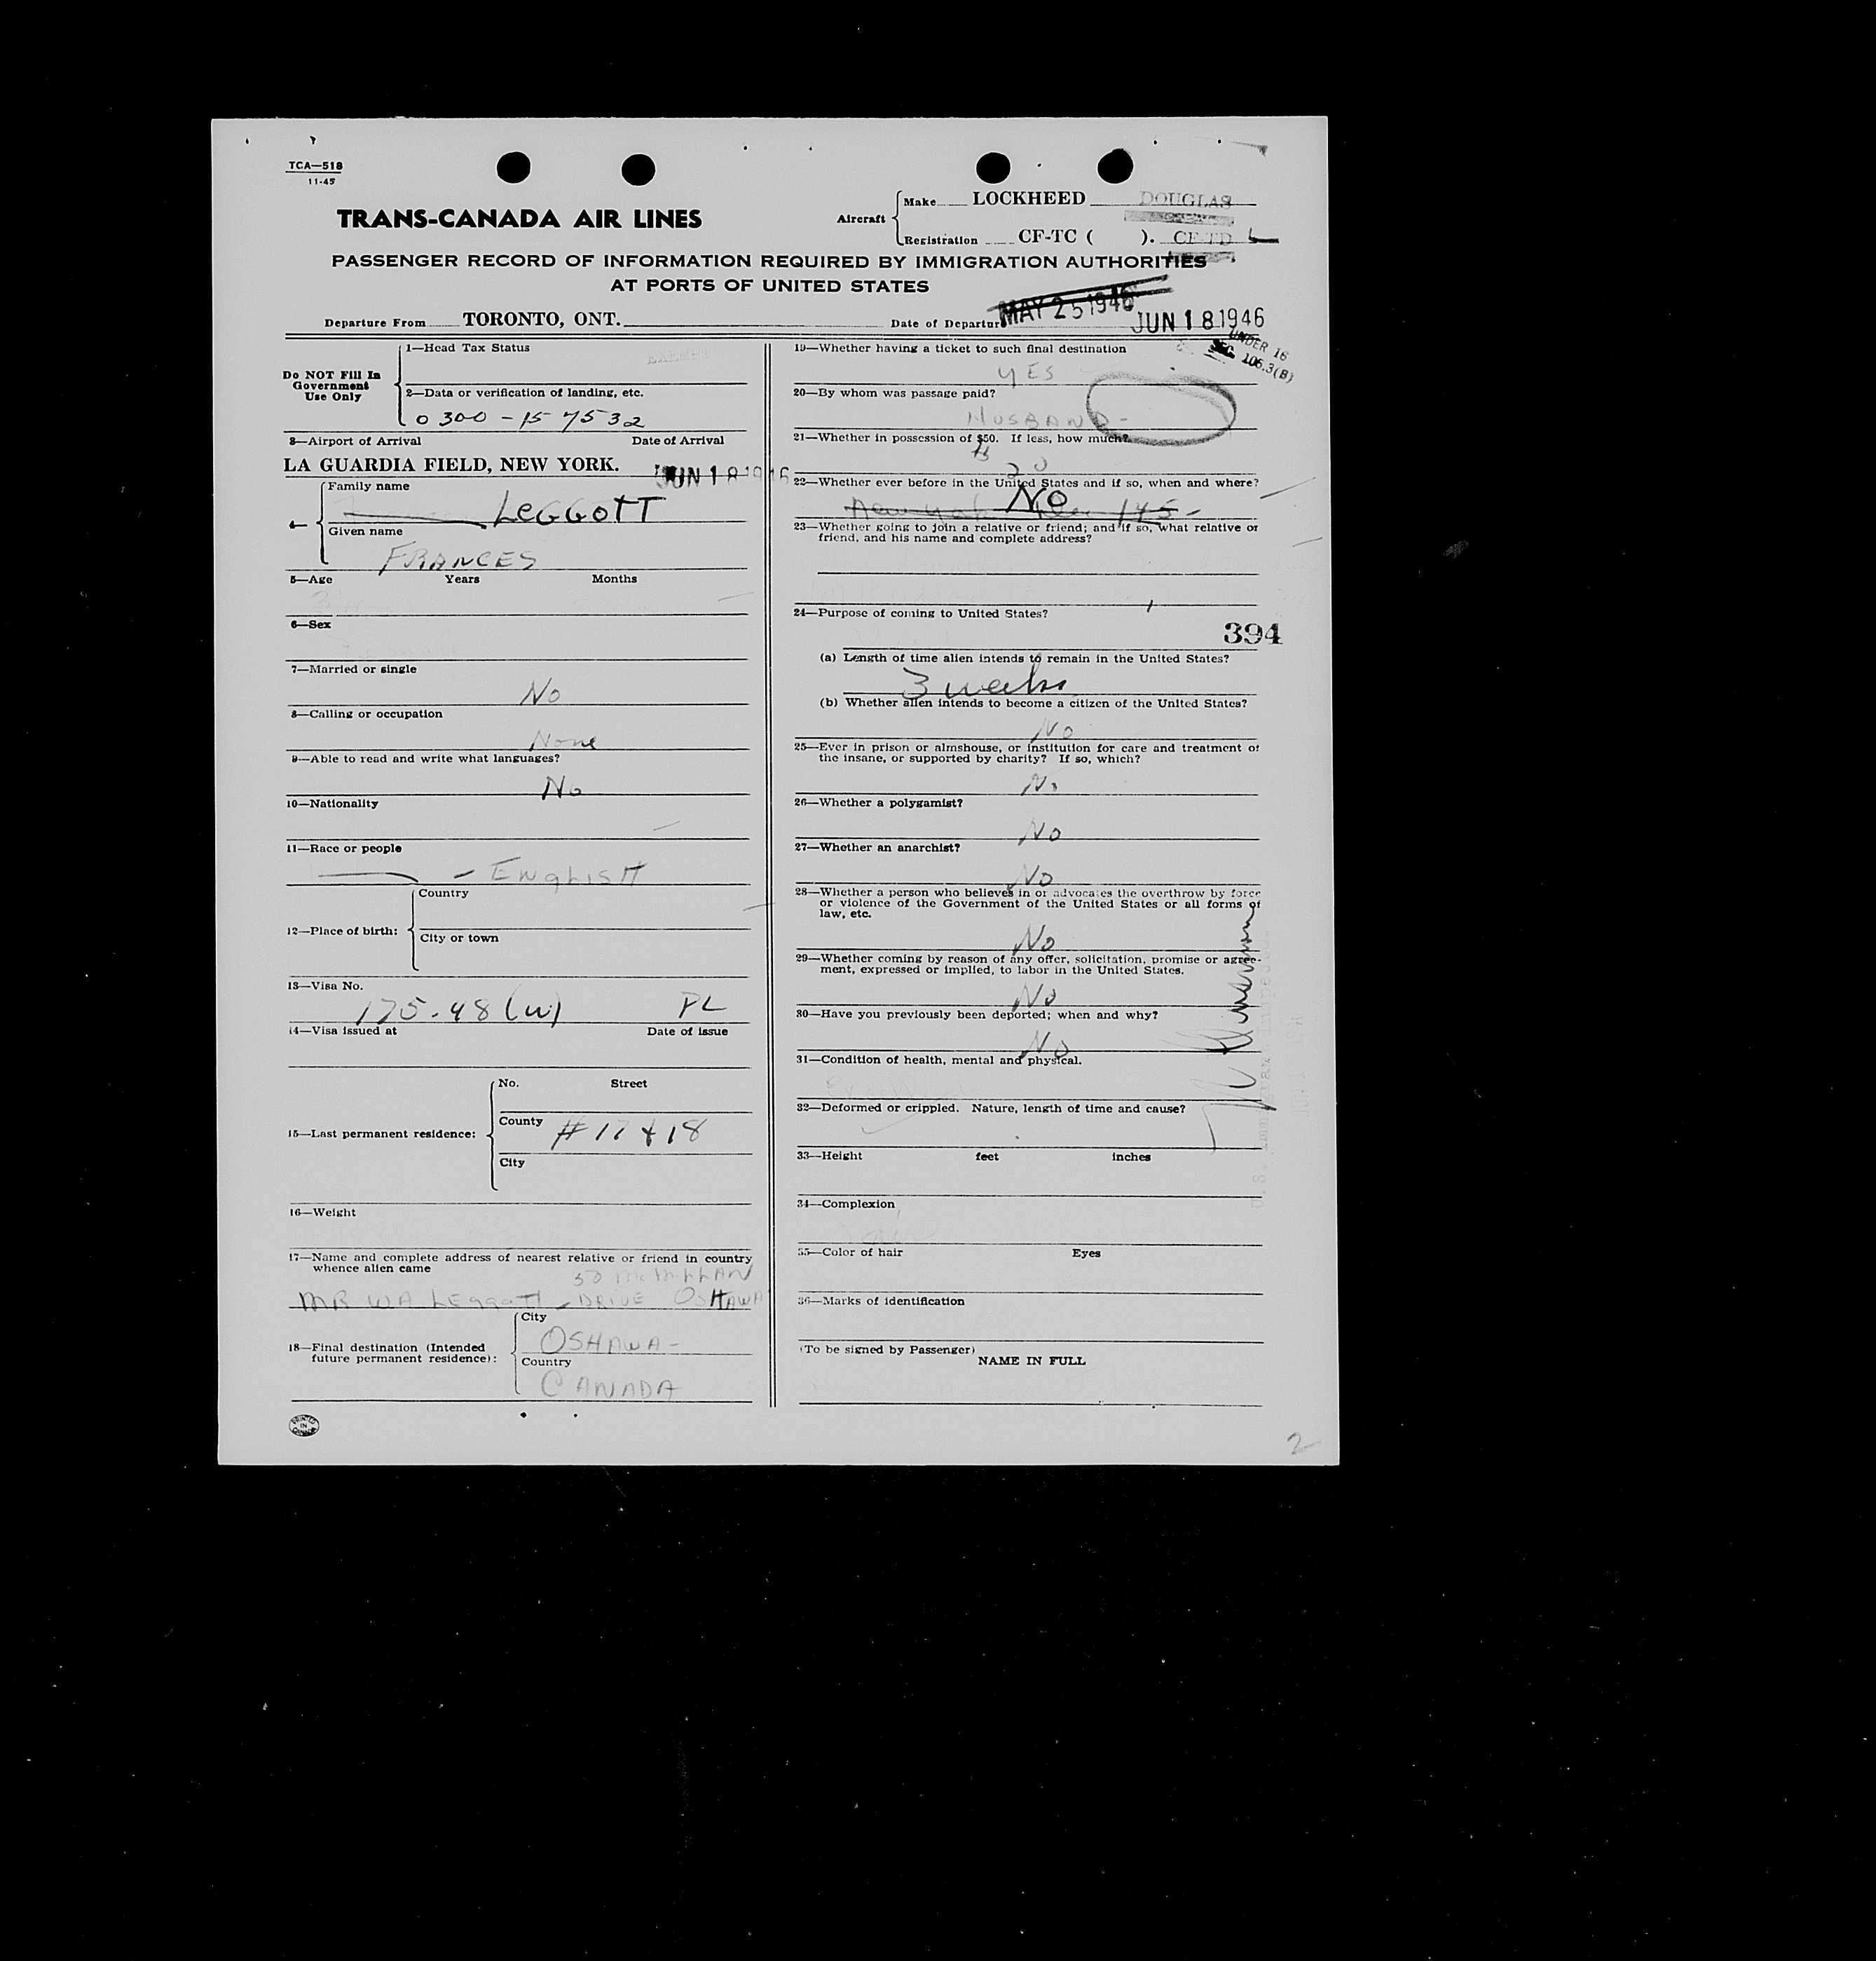 TCA—518
11-45
TRANS-CANADA AIR LINES
Aircraft
Make LOCKHEED DOUGLAS
Registration CF-TC ( ). CF-TD L
PASSENGER RECORD OF INFORMATION REQUIRED BY IMMIGRATION AUTHORITIES
AT PORTS OF UNITED STATES
MAY 25 1946 JUN 18 1946
Departure From TORONTO, ONT. Date of Departure
UNDER 16
SEC. 106.3(B)
Do NOT Fill In
Government
Use Only
1—Head Tax Status
EXEMPT
2—Data or verification of landing, etc.
0300-15 7532
3—Airport of Arrival Date of Arrival
LA GUARDIA FIELD, NEW YORK. JUN 18 1946
4—
Family name
LEGGOTT
Given name
FRANCES
5—Age Years Months
6—Sex
7—Married or single
No
8—Calling or occupation
None
9—Able to read and write what languages?
No
10—Nationality
11—Race or people
— ENGLISH
12—Place of birth:
Country
City or town
13—Visa No.
175-48 (W) PL
14—Visa issued at Date of issue
15—Last permanent residence:
No. Street
County #17 & 18
City
16—Weight
17—Name and complete address of nearest relative or friend in country
whence alien came
50 McMILLAN
MR WA LEGGOTT - DRIVE OSHAWA
18—Final destination (Intended
future permanent residence):
City
OSHAWA-
Country
CANADA
PRINTED
IN
CANADA
19—Whether having a ticket to such final destination
YES
20—By whom was passage paid?
HUSBAND-
21—Whether in possession of $50. If less, how much?
20
22—Whether ever before in the United States and if so, when and where?
New York No 145-
23—Whether going to join a relative or friend; and if so, what relative or
friend, and his name and complete address?
24—Purpose of coming to United States?
394
(a) Length of time alien intends to remain in the United States?
3 weeks
(b) Whether alien intends to become a citizen of the United States?
No
25—Ever in prison or almshouse, or institution for care and treatment of
the insane, or supported by charity? If so, which?
No
26—Whether a polygamist?
No
27—Whether an anarchist?
No
28—Whether a person who believes in or advocates the overthrow by force
or violence of the Government of the United States or all forms of
law, etc.
No
29—Whether coming by reason of any offer, solicitation, promise or agree-
ment, expressed or implied, to labor in the United States.
No
30—Have you previously been deported; when and why?
No
31—Condition of health, mental and physical.
32—Deformed or crippled. Nature, length of time and cause?
33—Height feet inches
34—Complexion
35—Color of hair Eyes
36—Marks of identification
(To be signed by Passenger)
NAME IN FULL
2